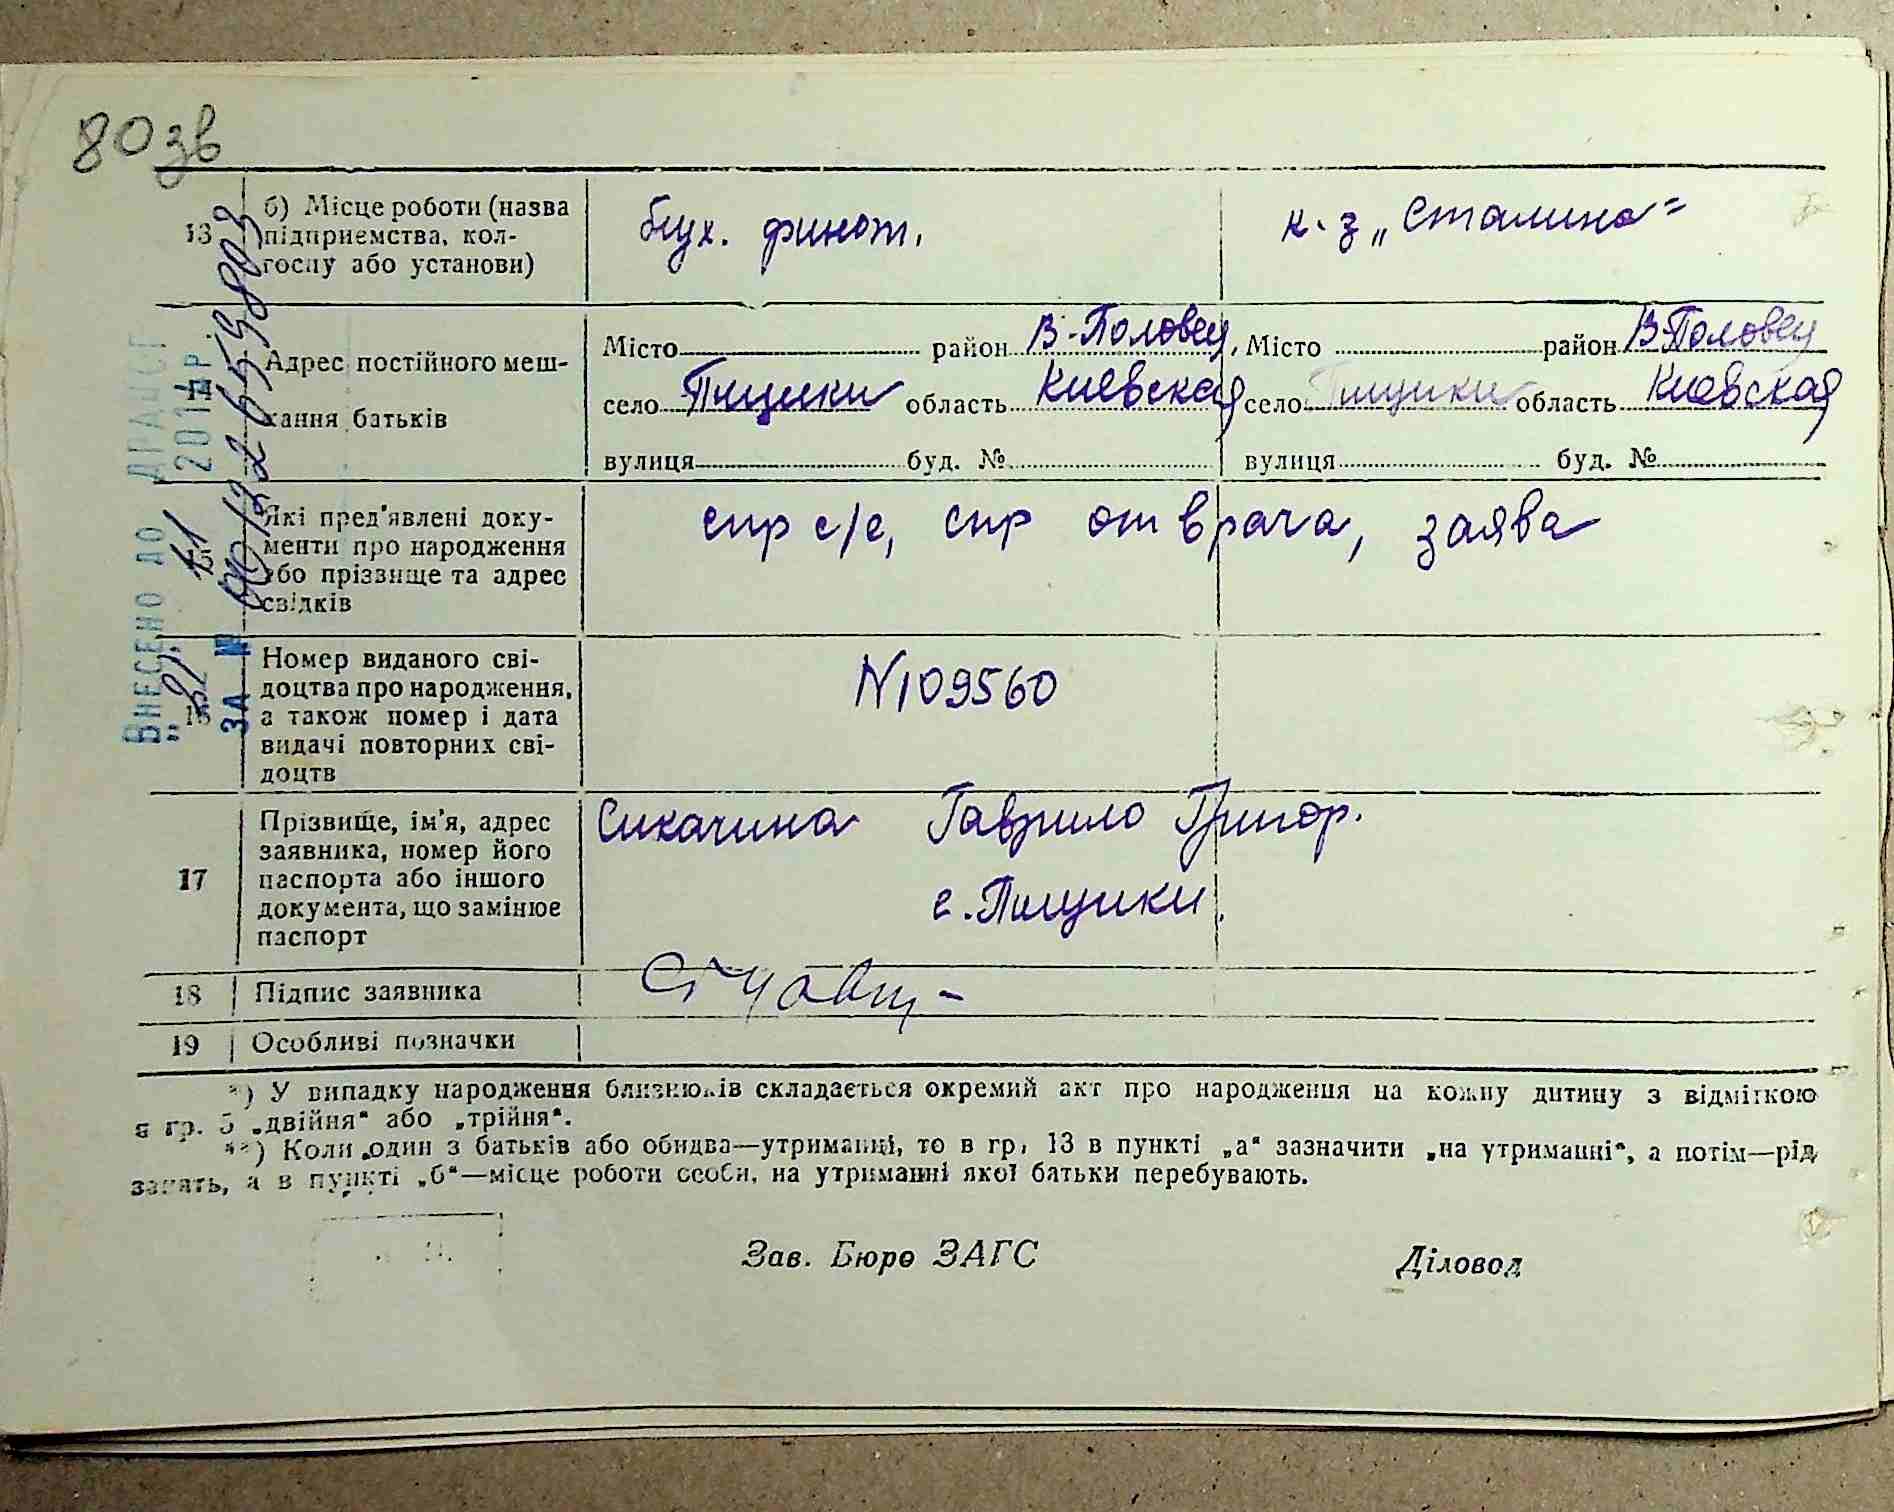 80 зв
13 б) Місце роботи (назва підприємства, кол-
госпу або установи)
бух. финот.
к-з „Сталина"
14 Адрес постійного меш-
кання батьків
Місто район В-Половец, Місто район В-Половец
село Пищики область Киевская село Пищики область Киевская
вулиця буд. № вулиця буд. №
15 Які пред'явлені доку-
менти про народження
або прізвище та адрес
свідків
спр с/с, спр от врача, заява
16 Номер виданого сві-
доцтва про народження,
а також номер і дата
видачі повторних сві-
доцтв
N109560
17 Прізвище, ім'я, адрес
заявника, номер його
паспорта або іншого
документа, що замінює
паспорт
Сикачина Гаврило Григор.
с. Пищики.
18 Підпис заявника
19 Особливі позначки
*) У випадку народження близнюків складається окремий акт про народження на кожну дитину з відміткою
в гр. 5 „двійня" або „трійня".
**) Коли один з батьків або обидва—утриманці, то в гр. 13 в пункті „а" зазначити „на утриманні", а потім—рід
занять, а в пункті „б"—місце роботи особи, на утриманні якої батьки перебувають.
Зав. Бюро ЗАГС Діловод
Внесено до ДРАЦСГ
„21" 11 2014 р.
за №